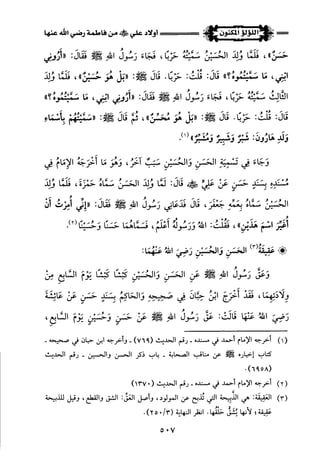 اللؤلؤ المكنون
أولاد علي ﷺ من فاطمة رضي الله عنها
حَسَنٌ»، فَلَمَّا وُلِدَ الحُسَيْنُ سَمَّيْتُهُ حَرْبًا، فَجَاءَ رَسُولُ اللهِ ﷺ فَقَالَ: «أَرُونِي
ابْنِي، مَا سَمَّيْتُمُوهُ؟» قَالَ: قُلْتُ: حَرْبًا. قَالَ ﷺ: «بَلْ هُوَ حُسَيْنٌ»، فَلَمَّا وُلِدَ
الثَّالِثُ سَمَّيْتُهُ حَرْبًا، فَجَاءَ رَسُولُ اللهِ ﷺ فَقَالَ: «أَرُونِي ابْنِي، مَا سَمَّيْتُمُوهُ؟»
قَالَ: قُلْتُ: حَرْبًا. قَالَ ﷺ: «بَلْ هُوَ مُحَسِّنٌ»، ثُمَّ قَالَ ﷺ: «سَمَّيْتُهُمْ بِأَسْمَاءِ
وَلَدِ هَارُونَ: شَبَّرُ وَشَبِيرُ وَمُشَبِّرٌ» (١).
وَجَاءَ فِي تَسْمِيَةِ الحَسَنِ وَالحُسَيْنِ سَبَبٌ آخَرُ، وَهُوَ مَا أَخْرَجَهُ الإِمَامُ فِي
مُسْنَدِهِ بِسَنَدٍ حَسَنٍ عَنْ عَلِيٍّ قَالَ: لَمَّا وُلِدَ الحَسَنُ سَمَّاهُ حَمْزَةَ، فَلَمَّا وُلِدَ
الحُسَيْنُ سَمَّاهُ بِعَمِّهِ جَعْفَرٍ، قَالَ: فَدَعَانِي رَسُولُ اللهِ ﷺ فَقَالَ: «إِنِّي أُمِرْتُ أَنْ
أُغَيِّرَ اسْمَ هَذَيْنِ»، فَقُلْتُ: اللهُ وَرَسُولُهُ أَعْلَمُ، فَسَمَّاهُمَا حَسَنًا وَحُسَيْنًا (٢).
عَقِيقَةُ (٣) الحَسَنِ وَالحُسَيْنِ رَضِيَ اللهُ عَنْهُمَا:
وَعَقَّ رَسُولُ اللهِ ﷺ عَنِ الحَسَنِ وَالحُسَيْنِ كَبْشًا كَبْشًا يَوْمَ السَّابِعِ مِنْ
وِلَادَتِهِمَا، فَقَدْ أَخْرَجَ ابْنُ حِبَّانَ فِي صَحِيحِهِ وَالحَاكِمُ بِسَنَدٍ حَسَنٍ عَنْ عَائِشَةَ
رَضِيَ اللهُ عَنْهَا قَالَتْ: عَقَّ رَسُولُ اللهِ ﷺ عَنْ حَسَنٍ وَحُسَيْنٍ يَوْمَ السَّابِعِ،
(١) أخرجه الإمام أحمد في مسنده ـ رقم الحديث (٧٦٩) ـ وأخرجه ابن حبان في صحيحه ـ
كتاب إخباره ﷺ عن مناقب الصحابة ـ باب ذكر الحسن والحسين ـ رقم الحديث
(٦٩٥٨).
(٢) أخرجه الإمام أحمد في مسنده ـ رقم الحديث (١٣٧٠)
(٣) العَقِيقَةُ: هي الذَّبيحة التي تُذبح عن المولود، وأصل العَقِّ: الشق والقطع، وقيل للذبيحة
عقيقة؛ لأنها يُشَقُّ حَلْقُها. انظر النهاية (٣/ ٢٥٠).
٥٠٧